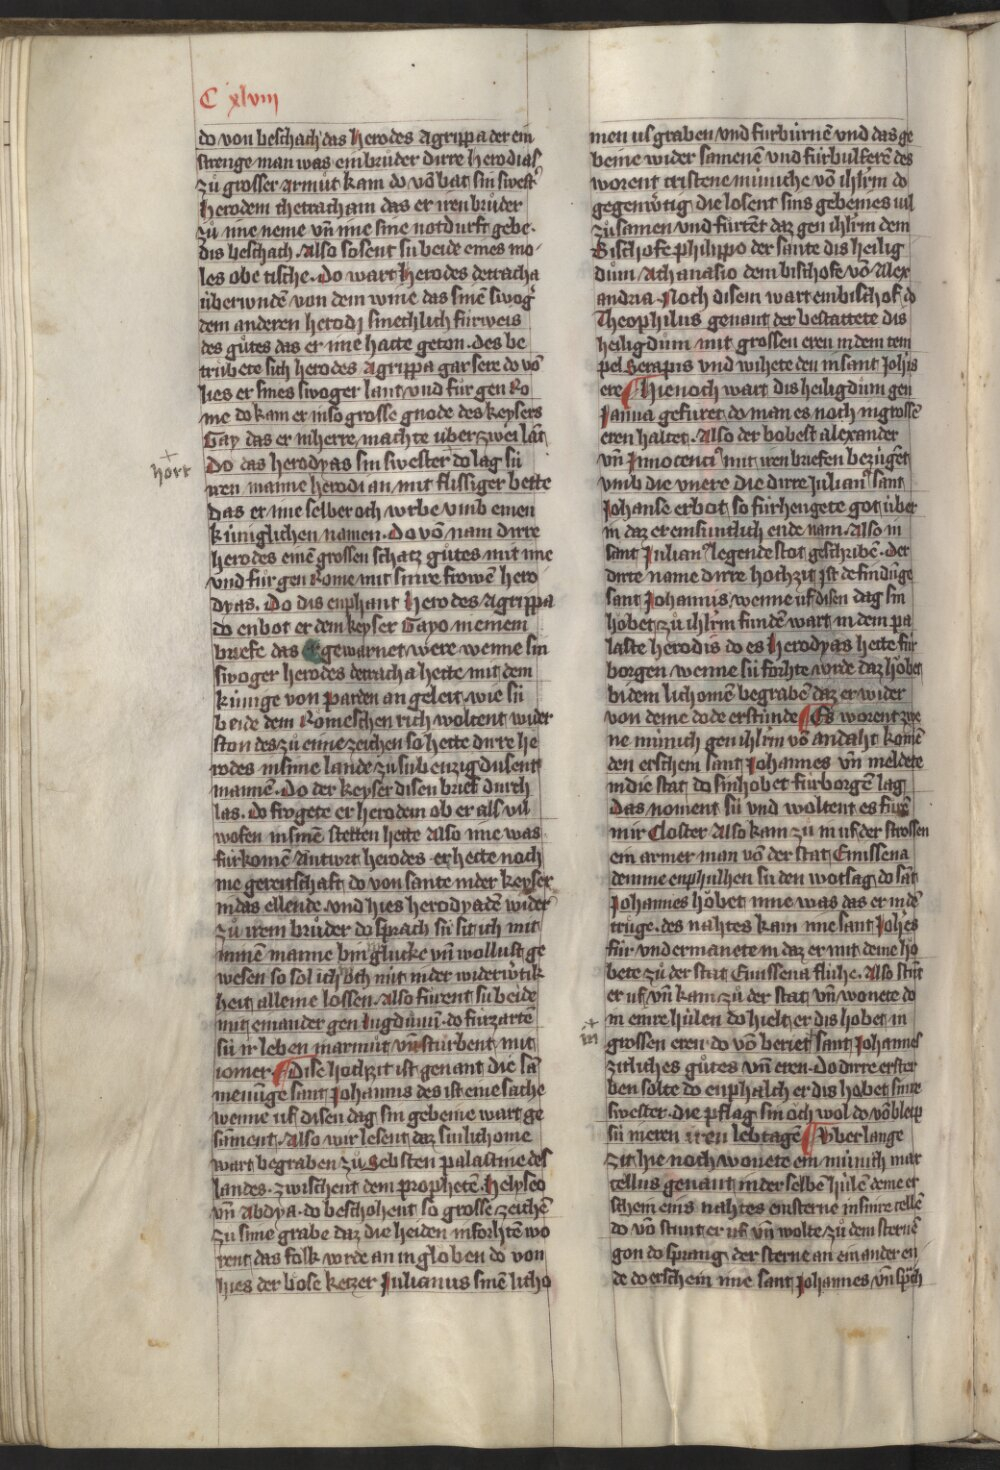 C xlviii
do von beschach das herodes Agrippa der ein
strenge man was ein brůder dirre herodias
zů grosser armůt kam do vō bat sin swest͛
herodem thetracham das er iren brůder
zů ime neme vn̄ ime sine notdurft gebe·
dis beschach· Also sosent sü beide eines mo
les obe tische· Do wart herodes detracha
überwndē von dem wine das sinē swog͛
dem anderen herodi smechlich fürweis
des gůtes das er ime hatte geton· des be
trübete sich herodes Agrippa gar sere do vō
lies er sines swoger lant vnd für gen Ro
me do kam er in so grosse gnode des keysers
Gay das er in herre machte über zwei lāt
Do das herodyas sin swester do lag sü
hort
iren manne herodi an mit flissiger bette
das er ime selber och wrbe vmb einen
küniglichen namen· Do vō nam dirre
herodes einē grossen schatz gůtes mit ime
vnd für gen Rome mit sinre frowē hero
dyas· Do dis enphant herodes Agrippa
do enbot er dem keyser Gayo in einem
briefe das er gewarnet were wenne sin
swoger herodes detracha hette mit dem
künige von parden an geleit wie sü
beide dem Romeschen rich woltent wider
ston des zů eime zeichen so hette dirre he
rodes in sime lande zu sübenzig dusent
mannē· Do der keyser disen brief durch
las· do frogete er herodem ob er alse vil
wofen in sinē stetten hette also ime was
fürkomē Antwrt herodes er hette noch
me gereitschaft do von sante in der keyser
in das ellende· vnd hies herodyadē wider
zů irem brůder do sprach sü sit ich mit
minē manne bin glucke vn̄ wollust ge
wesen so sol ich och mit in der widerwtik
heit alleine lossen· Also fürent sü beide
mit einander gen lugdunū· do fürzartē
sü ir leben in armůt vn̄ sturbent mit
iomer Dise hochzit ist genant die sā
menūge sant Johannis des ist eine sache
wenne uf disen dag sin gebeine wart ge
sāment· Also wir lesent daz sin lichome
wart begraben zů Sebsten palastine des
landes· zwischent dem prophetē· Helyseo
vn̄ Abdya· do beschohent so grosse zeichē
zu sime grabe daz die heiden in forhtē wo
rent das folk wrde an in globen do von
hies der böse ketzer Julianus sinē licho
men us graben vnd fürbürnē vnd das ge
beine wider samenē vnd fürbulferē des
worent cristene müniche vō ihr̄lm do
gegenwrtig die losent sins gebeines vil
zůsamen vnd fürtēt daz gen ihr̄lm dem
Bischofe philippo der sante dis heilig
dům Athanasio dem bischofe vō Alex
andria· Noch disem wart ein bischof do
Theophilus genant der bestattete dis
heiligdům mit grossen eren in dem tem
pel Serapis vnd wihete den in sant Johīs
ere Hie noch wart dis heiligdům gen
Janua gefüret do man es noch in grossē
eren haltet· Also der bobest alexander
vn̄ Innocenciꝰ mit iren briefen bezügēt
vmb die vnere die dirre Julianꝰ sant
Johanse erbot so fürhengete got über
in daz er ein süntlich ende nam· Also in
sant Julianꝰ legende stot geschribē· Der
dirte name dirre hochzit ist de findūge
sant Johannis, wenne uf disen dag sin
höbet zů ihr̄lm fundē wart in dem pa
laste herodis do es herodyas hette für
borgen· wenne sü forhte wrde daz höbet
bi dem lichomē begrabē daz er wider
von deme dode erstünde Es worent zwe
ne münich gen ihr̄lm vō andaht komē
den erschein sant Johannes vn̄ meldete
in die stat do sin höbet fürborgē lag
Das noment sü vnd woltent es fürē
in ir Closter Also kam zů in uf der strossen
ein armer man vō der stat Emissena
deme enphulhen sü den wotsag do sāt
Johannes höbet inne was das er in dē
trüge· des nahtes kam ime sant Joh̄es
für vnd ermanete in daz er mit deme hö
bete zů der stat Emissena fluhe· Also stůt
er uf vn̄ kam zů der stat vn̄ wonete do
in einre hülen do hielt er dis höbet in
in
grossen eren· do vō beriet sant Johannes
zitliches gůtes vn̄ eren· Do dirre erster
ben solte do enphalch er dis höbet sinre
swester· die pflag sin och wol do vō bleip
sü in eren iren lebtagē Vber lange
zit hie noch wonete ein münich mar
cellus genant in der selbē hülē deme er
schein eins nahtes ein sterne in sinre cellē
do vō stunt er uf vn̄ wolte zů dem sternē
gon do sprang der sterne an ein ander en
de do erschein ime sant Johannes vn̄ sprch